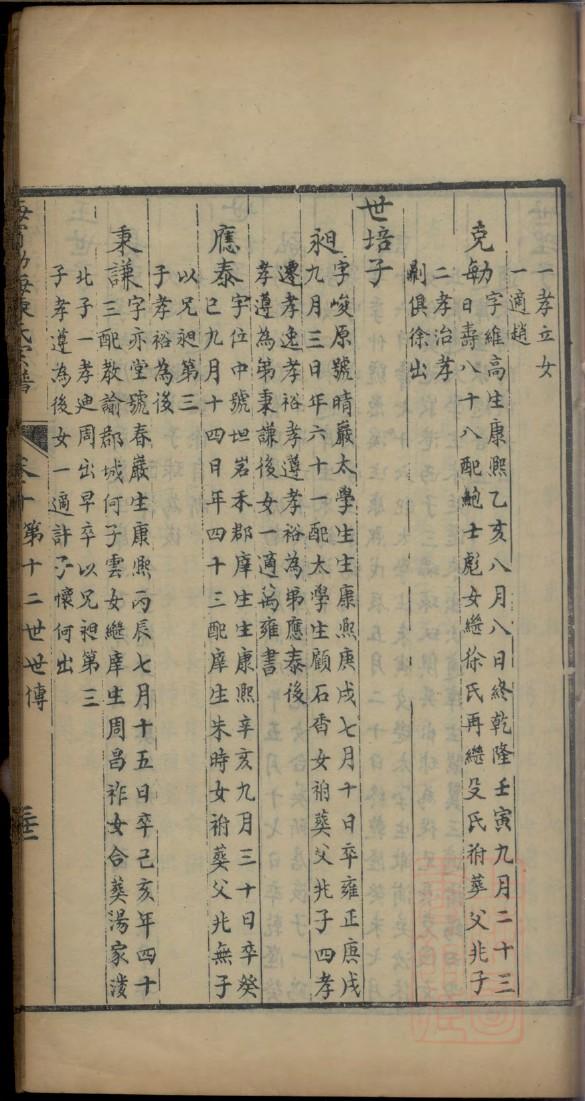 一孝立女
一適趙
克勄
字維高生康熙乙亥八月八日終乾隆壬寅九月二十三
日壽八十八配鮑士彪女繼徐氏再繼殳氏祔葬父兆子
二孝治孝
剬俱徐出
世培子
昶
字峻原號晴巖太學生生康熙庚戌七月十日卒雍正庚戌
九月三日年六十一配太學生顧石香女祔葬父兆子四孝
遷孝逸孝裕孝遵孝裕為弟應泰後
孝遵為弟秉謙後女一適萬雍書
應泰
字位中號坦岩禾郡庠生生康熙辛亥九月三十日卒癸
巳九月十四日年四十三配庠生朱時女祔葬父兆無子
以兄昶第三
子孝裕為後
秉謙
字亦堂號春巖生康熙丙辰七月十五日卒己亥年四十
三配教諭郡城何子雲女繼庠生周昌祚女合葬湯家漊
北子一孝迪周出早卒以兄昶第三
子孝遵為後女一適許子懷何出
海寧渤海陳氏宗譜
卷十 第十二世世傳